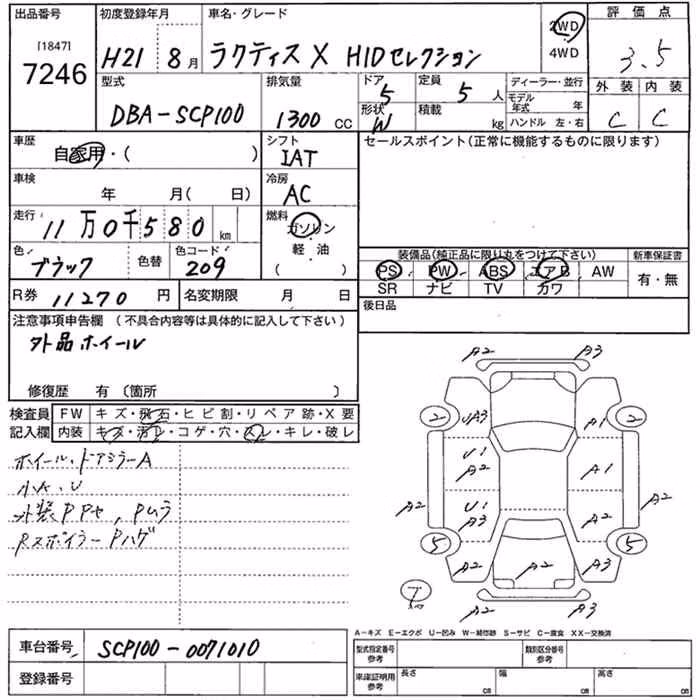 出品番号 初度登録年月 車名・グレード 2WD 評価点
[1847] 7246 H21 8月 ラクティス X HIDセレクション 4WD 3.5
型式 排気量 ドア 5 定員 5人 ディーラー・並行 外装 内装
DBA-SCP100 1300 CC 形状 W 積載 kg モデル年式 年 C C
ハンドル 左・右
車歴 シフト セールスポイント(正常に機能するものに限ります)
自家用・( ) IAT
車検 冷房
年 月( 日) AC
走行 燃料
11万0千580km ガソリン
色 色替 色コード 軽・油
ブラック 209 ( )
装備品(純正品に限り丸をつけて下さい) 新車保証書
PS PW ABS エアB AW 有・無
SR ナビ TV カワ
R券 11270円 名変期限 月 日 後日品
注意事項申告欄 (不具合内容等は具体的に記入して下さい)
外品ホイール
修復歴 有 〔箇所 〕
検査員 FW キズ・飛石・ヒビ割・リペア跡・X要
記入欄 内装 キズ・汚レ・コゲ・穴・スレ・キレ・破レ
ホイール・ドアミラーA
小A、U
外装PPヤ、Pムラ
Rスポイラー Pハゲ
A2 A3
2 UA3 A1 2
U1 A2 A1
A2 U1 A3 A2 A2
5 A2 A2 A2 5
A2 A3
A-キズ E-エクボ U-凹み W-補修跡 S-サビ C-腐食 XX-交換済
車台番号 SCP100-0071010 型式指定番号 参考 類別区分番号 参考
登録番号 車庫証明用 参考 長さ cm 幅 cm 高さ cm